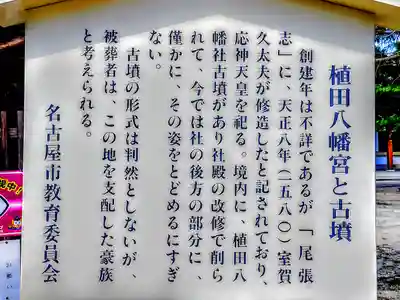 植田八幡宮と古墳
創建年は不詳であるが、「尾張
志」に、天正八年(一五八〇)室賀
久太夫が修造したと記されており、
応神天皇を祀る。境内に、植田八
幡社古墳があり社殿の改修で削ら
れて、今では社の後方の部分に、
僅かに、その姿をとどめるにすぎ
ない。
古墳の形式は判然としないが、
被葬者は、この地を支配した豪族
と考えられる。
名古屋市教育委員会